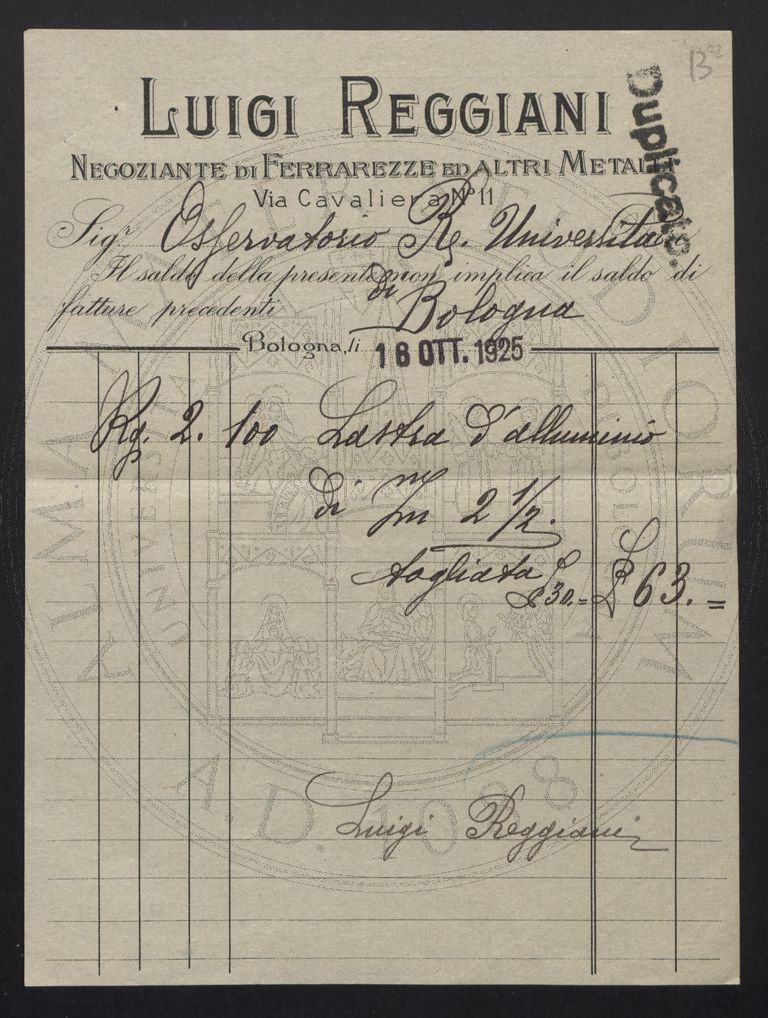 B
LUIGI REGGIANI
Duplicato.
NEGOZIANTE DI FERRAREZZE ED ALTRI METALLI
Via Cavaliera N° 11
Sigr. Osservatorio R. Università
Il saldo della presente non implica il saldo di
fatture precedenti
di Bologna
Bologna, li 18 OTT. 1925
Kg. 2. 100 Lastra d'alluminio
di m/m 2 1/2.
tagliata £ 30.= £ 63.=
Luigi Reggiani
ALMA MATER STUDIORUM
A.D. 1088